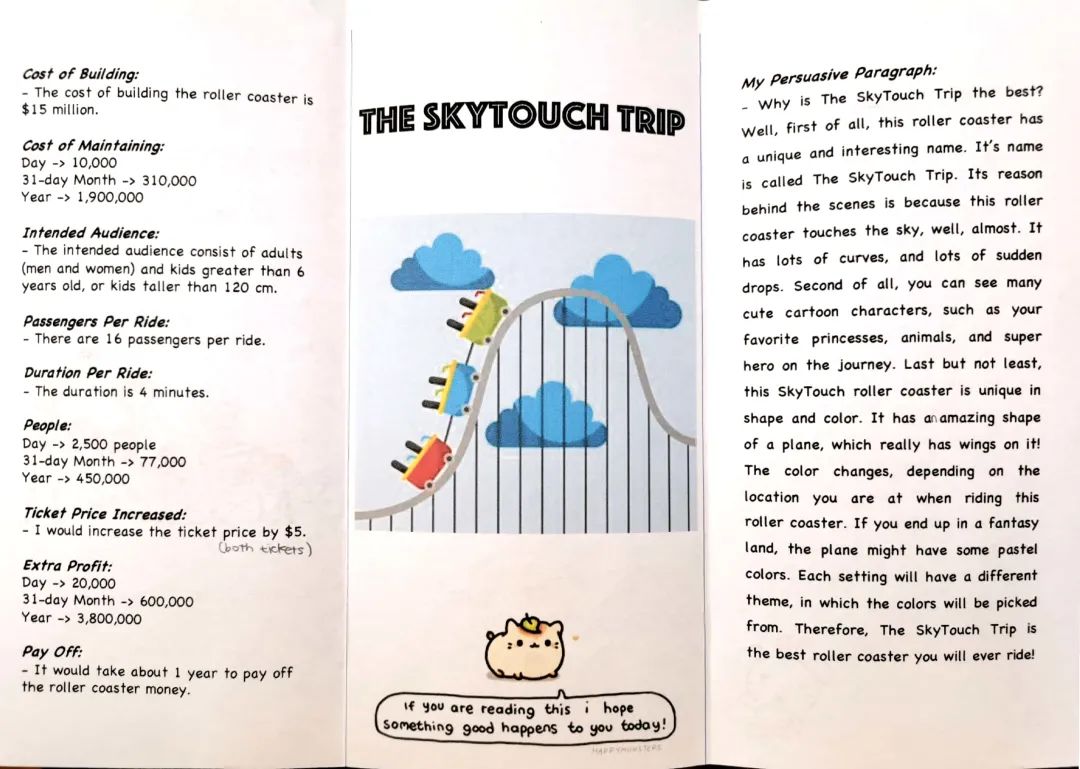 Cost of Building:
- The cost of building the roller coaster is
$15 million.
Cost of Maintaining:
Day -> 10,000
31-day Month -> 310,000
Year -> 1,900,000
Intended Audience:
- The intended audience consist of adults
(men and women) and kids greater than 6
years old, or kids taller than 120 cm.
Passengers Per Ride:
- There are 16 passengers per ride.
Duration Per Ride:
- The duration is 4 minutes.
People:
Day -> 2,500 people
31-day Month -> 77,000
Year -> 450,000
Ticket Price Increased:
- I would increase the ticket price by $5.
(both tickets)
Extra Profit:
Day -> 20,000
31-day Month -> 600,000
Year -> 3,800,000
Pay Off:
- It would take about 1 year to pay off
the roller coaster money.
THE SKYTOUCH TRIP
If you are reading this i hope
something good happens to you today!
HAPPYMONSTERS
My Persuasive Paragraph:
- Why is The SkyTouch Trip the best?
Well, first of all, this roller coaster has
a unique and interesting name. It's name
is called The SkyTouch Trip. Its reason
behind the scenes is because this roller
coaster touches the sky, well, almost. It
has lots of curves, and lots of sudden
drops. Second of all, you can see many
cute cartoon characters, such as your
favorite princesses, animals, and super
hero on the journey. Last but not least,
this SkyTouch roller coaster is unique in
shape and color. It has an amazing shape
of a plane, which really has wings on it!
The color changes, depending on the
location you are at when riding this
roller coaster. If you end up in a fantasy
land, the plane might have some pastel
colors. Each setting will have a different
theme, in which the colors will be picked
from. Therefore, The SkyTouch Trip is
the best roller coaster you will ever ride!